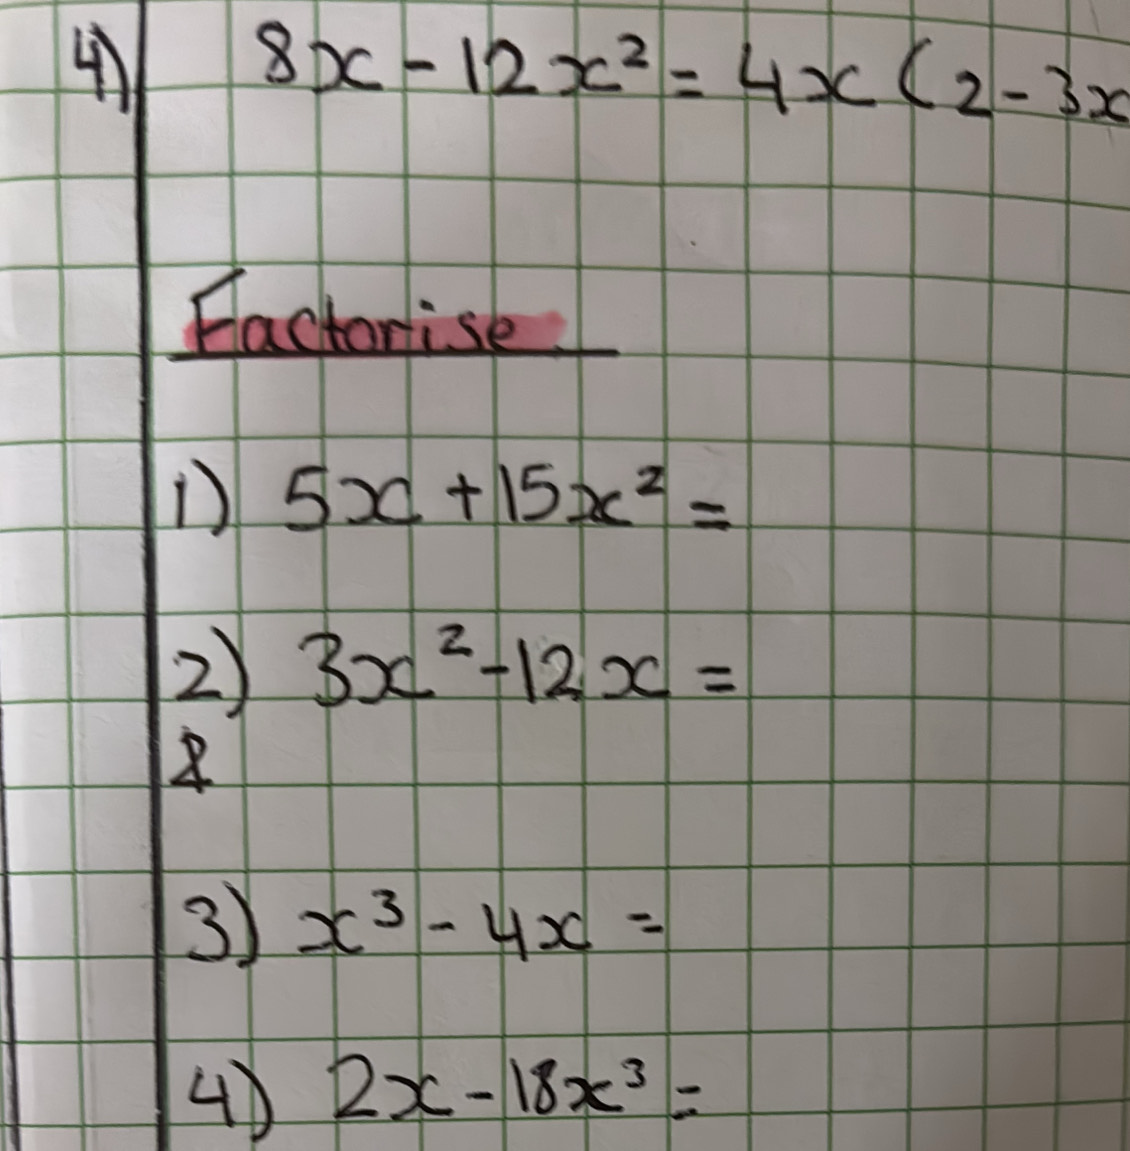 4) 8x - 12x² = 4x (2 - 3x
Factorise
1) 5x + 15x² =
2) 3x² - 12x =
3) x³ - 4x =
4) 2x - 18x³ =